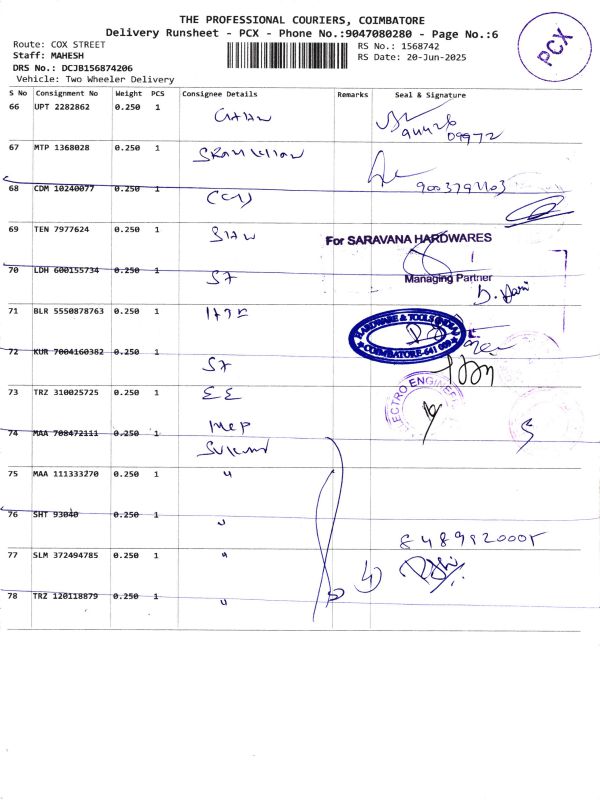 THE PROFESSIONAL COURIERS, COIMBATORE
Delivery Runsheet - PCX - Phone No.:9047080280 - Page No.:6
Route: COX STREET
Staff: MAHESH
DRS No.: DCJB156874206
Vehicle: Two Wheeler Delivery
RS No.: 1568742
RS Date: 20-Jun-2025
PCX
S No Consignment No Weight PCS Consignee Details Remarks Seal & Signature
66 UPT 2282862 0.250 1
67 MTP 1368028 0.250 1
68 CDM 10240077 0.250 1
69 TEN 7977624 0.250 1
For SARAVANA HARDWARES
Managing Partner
70 LDH 600155734 0.250 1 ST
71 BLR 5550878763 0.250 1
HARDWARE & TOOLS
COIMBATORE-641
72 KUR 7004160382 0.250 1 ST
73 TRZ 310025725 0.250 1 EE
74 MAA 708472111 0.250 1
75 MAA 111333270 0.250 1 "
76 SHT 93040 0.250 1 "
8489920005
77 SLM 372494785 0.250 1 "
78 TRZ 120118879 0.250 1 "